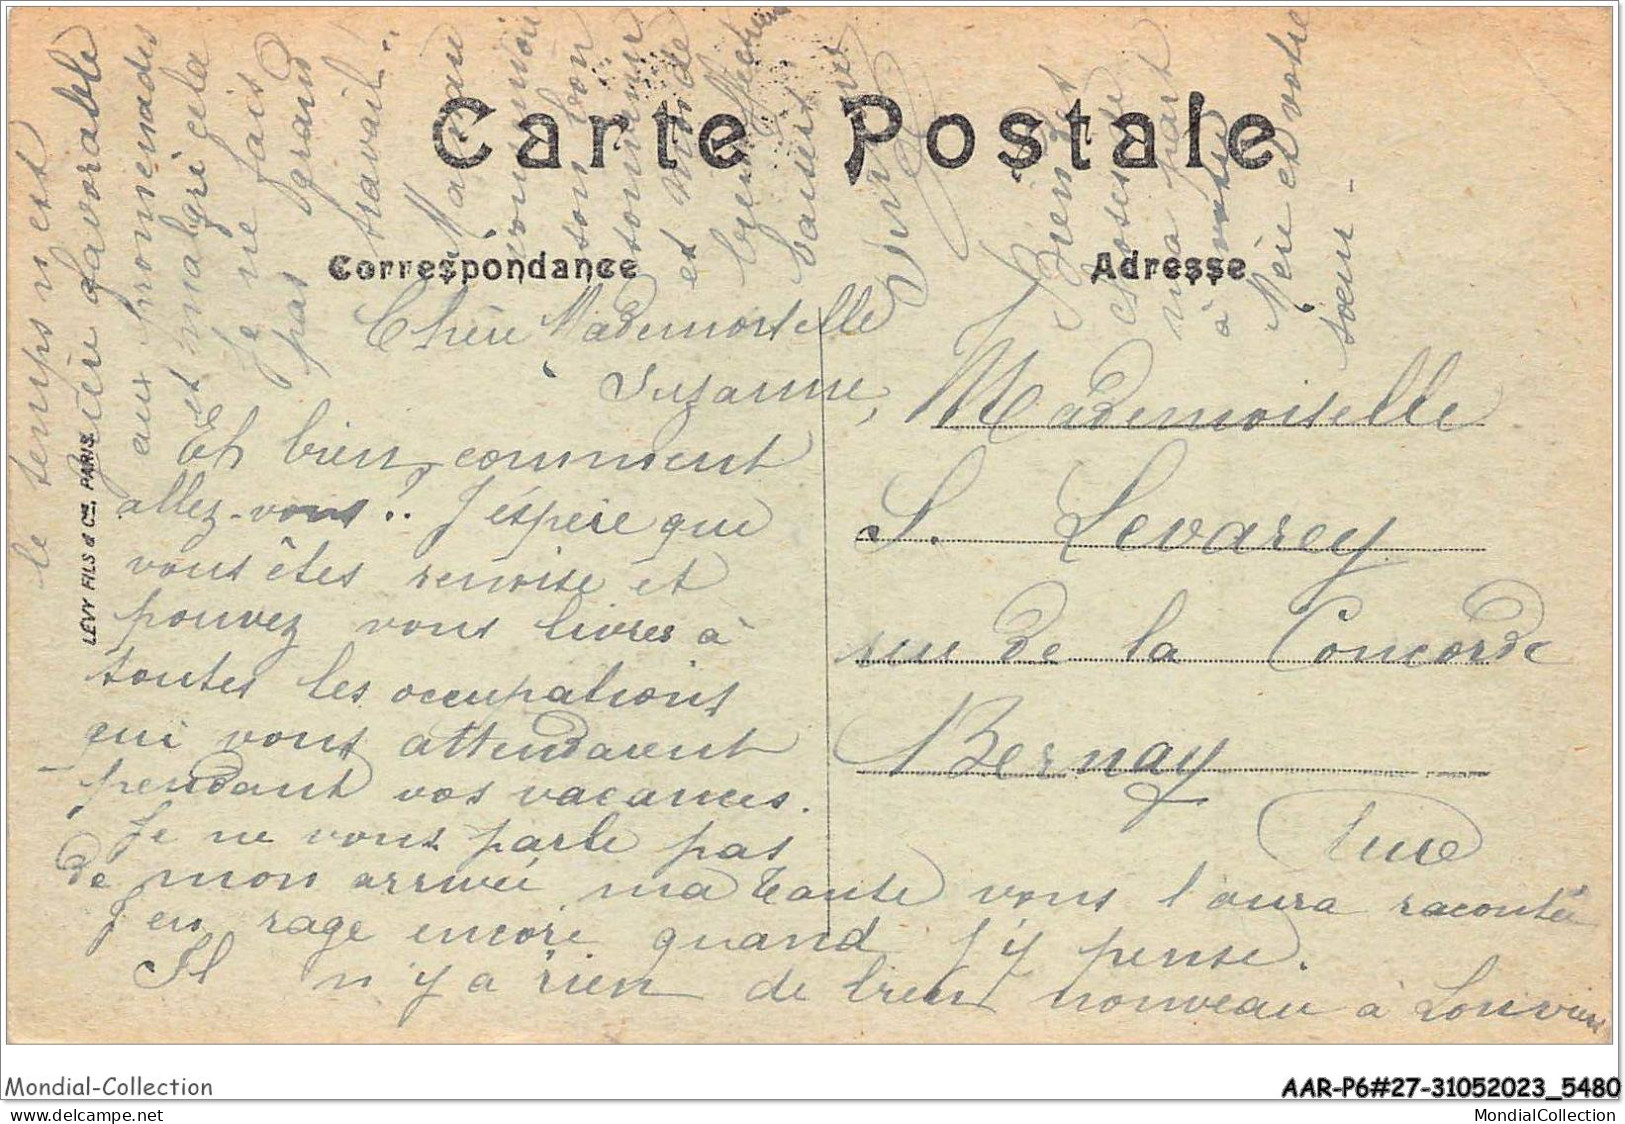 Carte Postale
Correspondance
Adresse
Chère Mademoiselle
Suzanne,
Eh bien, comment
allez-vous ? J'espère que
vous êtes remise et
pouvez vous livrer à
toutes les occupations
qui vous attendaient
pendant vos vacances.
Je ne vous parle pas
de mon arrivée ma tante vous l'aura racontée
J'en rage encore quand j'y pense.
Il n'y a rien de bien nouveau à Louviers
le temps n'est
guère favorable
aux promenades
et malgré cela
je ne fais
pas grand
travail..
Maman
vous envoie
son bon
souvenir
et moi de
bien affectueux
baisers
Bien des
choses de
ma part
à votre
Mère et votre
soeur -
Mademoiselle
S. Levarey
rue de la Concorde
Bernay
Eure
LEVY FILS & Cie, PARIS.
Mondial-Collection
AAR-P6#27-31052023_5480
MondialCollection.com
MondialCollection